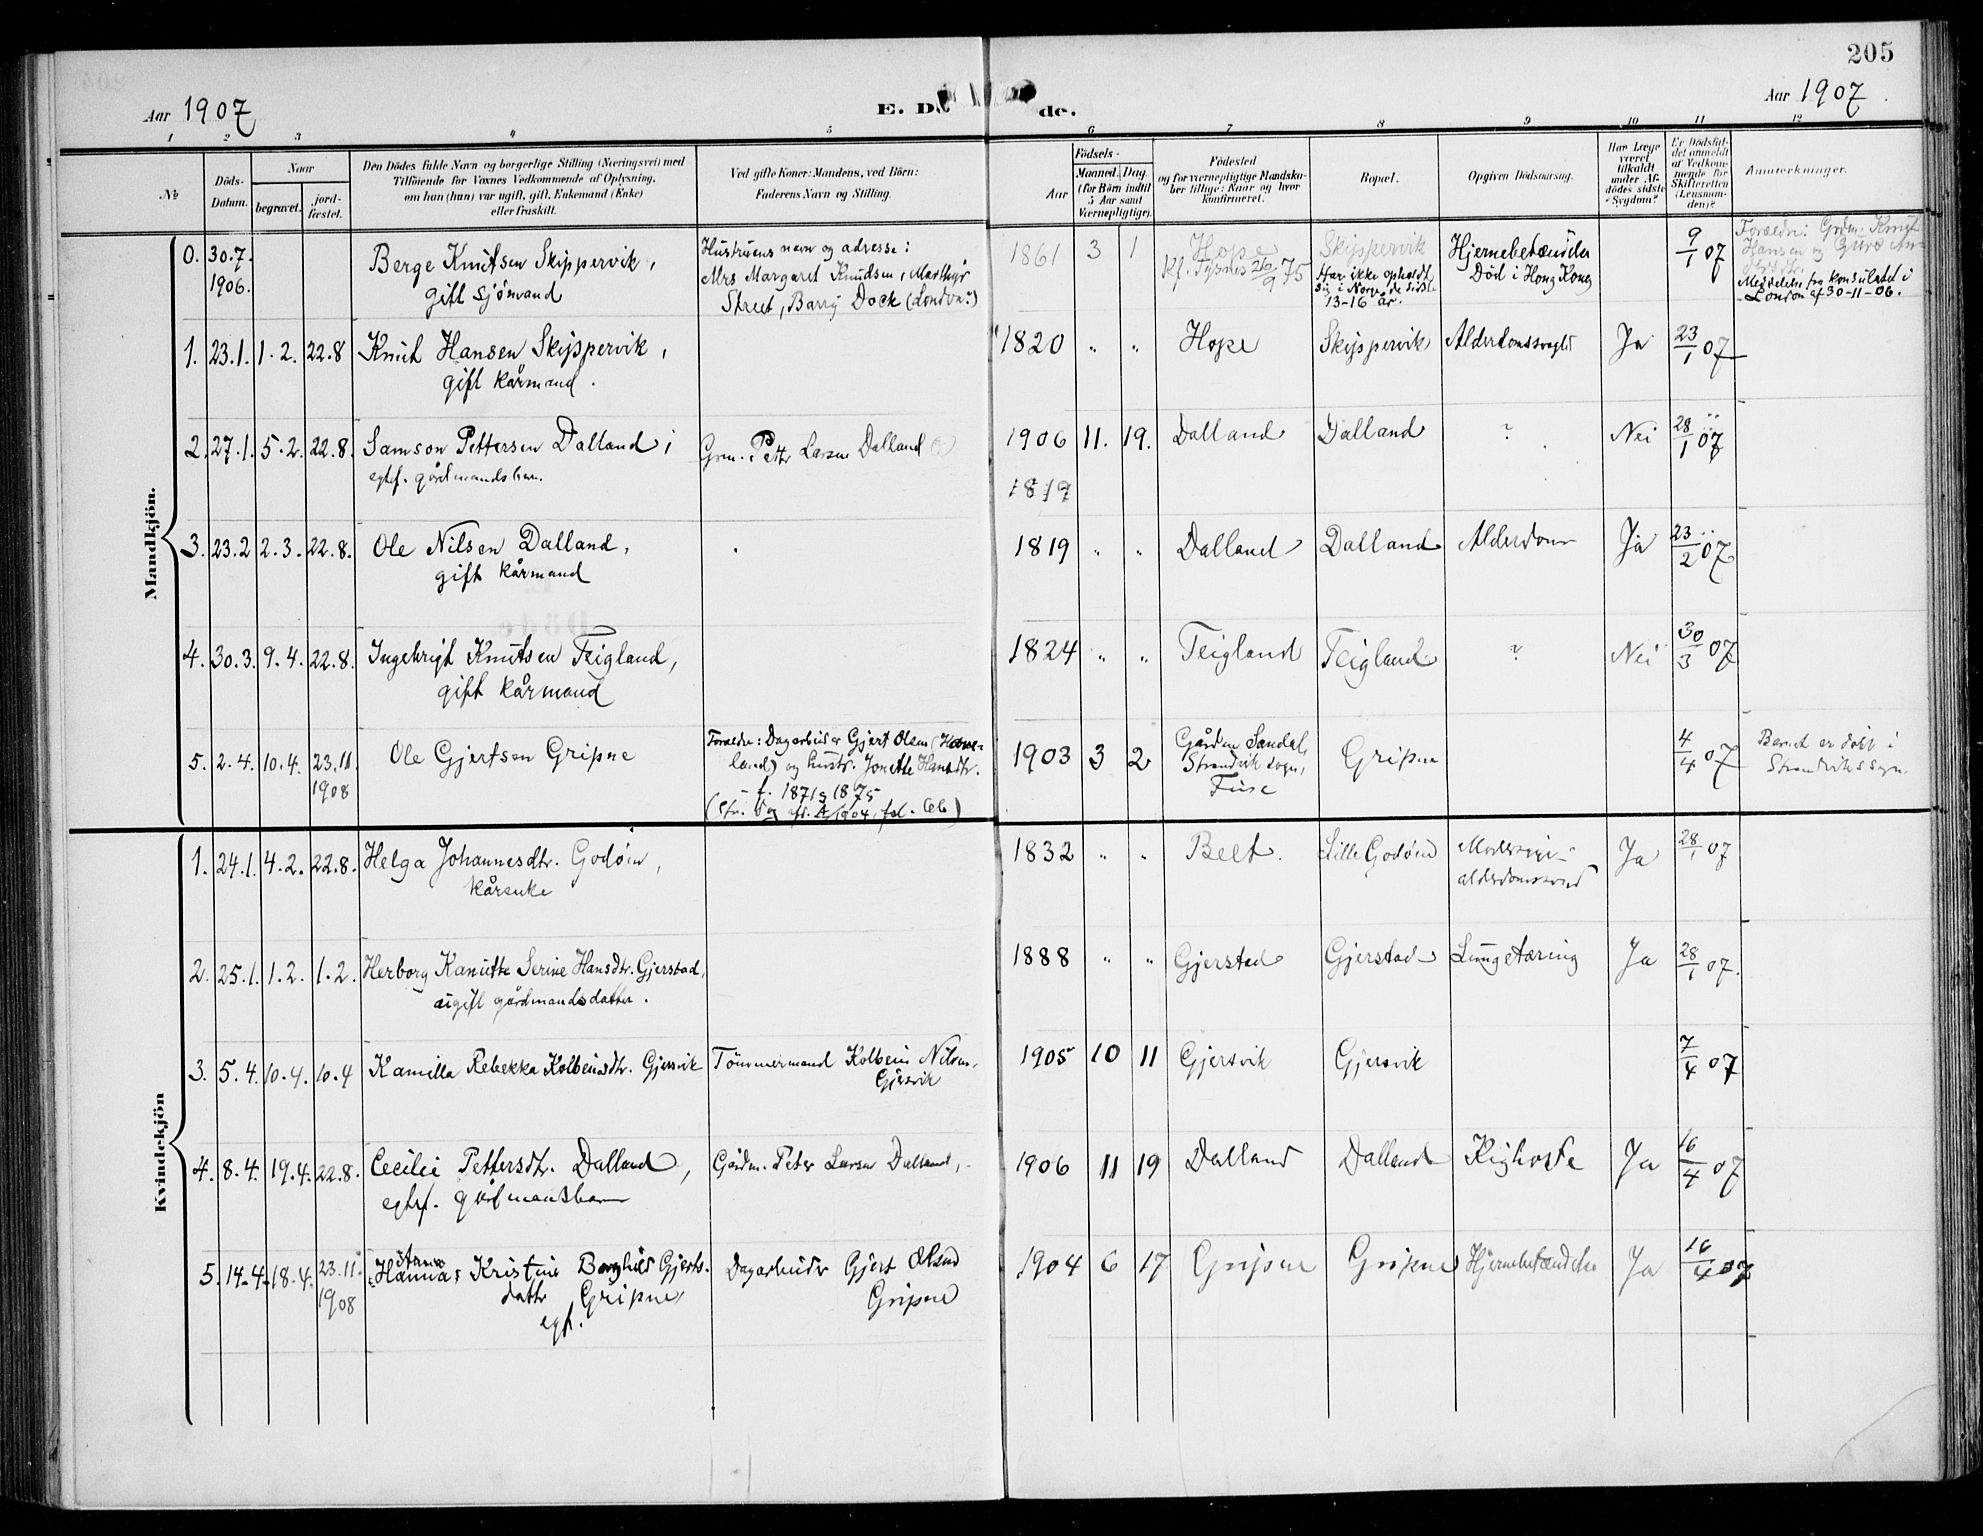 205
Aar 1907
E. Dö
de.
Aar 1907.
1 2 3 4 5 6 7 8 9 10 11 12
No.
Döds-
Datum.
Naar
begravet.
jord-
fæstet.
Den Dödes fulde Navn og borgerlige Stilling (Næringsvei) med
Tilföiende for Voxnes Vedkommende af Oplysning,
om han (hun) var ugift, gift, Enkemand (Enke)
eller fraskilt.
Ved gifte Koner: Mandens, ved Börn:
Faderens Navn og Stilling.
Födsels-
Aar
Maaned. Dag.
(for Börn indtil
5 Aar samt
Værnepligtige).
Födested
og for værnepligtige Mandska-
ber tillige: Naar og hvor
konfirmeret.
Bopæl.
Opgiven Dödsaarsag.
Har Læge
været
tilkaldt
under Af-
dödes sidste
Sygdom?
Er Dödsfal-
det anmeldt
af Vedkom-
mende for
Skifteretten
(Lensman-
den)?
Anmerkninger.
Mandkjön.
0. 30.7. 1906. Berge Knutsen Skippervik,
gift sjömand
Hustruens navn og adresse:
Mrs Margaret Knudsen, Marthyr
Street, Barry Dock (London?)
1861 3 1 Hope
Kf. Tysnes 26/9 75
Skippervik
Har ikke opholdt
sig i Norge de sidste
13-16 år.
Hjernebetændelse
Död i Hong Kong
9/1 07
Forældre: Grdm. Knut
Hansen og
Meddelelse fra konsulatet i
London af 30-11-06.
1. 23.1. 1.2. 22.8 Knut Hansen Skippervik,
gift kårmand.
1820 " " Hope Skippervik Alderdomssvaghed Ja 23/1 07
2. 27.1. 5.2. 22.8. Samson Pettersen Dalland,
egtef. gårdmandsbarn.
Grm. Petter Larsen Dalland
1906 11. 19. Dalland Dalland ? Nei 28/1 07
1819
3. 23.2 2.3. 22.8. Ole Nilsen Dalland,
gift kårmand
1819 " " Dalland Dalland Alderdom Ja 23/2 07
4. 30.3. 9.4. 22.8. Ingebrigt Knutsen Teigland,
gift kårmand
1824 " " Teigland Teigland ? Nei 30/3 07
5. 2.4. 10.4. 23.11. 1908 Ole Gjertsen Gripne
Forældre: Dagarbeider Gjert Olsen (Have-
land) og hustr. Jonette Hansdtr.
- f. 1871 og 1875
1903 3 2 Gården Sandal,
Strandvik sogn,
Fuse
Gripne
4/4 07
Barnet er döbt i
Strandviks sogn.
Kvindekjön
1. 24.1. 4.2. 22.8. Helga Johannesdtr. Godöen,
kårenke
1832 " " Belt. Lille Godöen
alderdomssvaghed
Ja 28/1 07
2. 25.1. 1.2. 1.2. Herborg Kanutte Serine Hansdtr. Gjerstad,
ugift gårdmandsdatter.
1888 " " Gjerstad Gjerstad Lungetæring Ja 28/1 07.
3. 5.4. 10.4. 10.4 Kamilla Rebekka Kolbeinsdtr. Gjersvik
Tömmermand Kolbein Nilsen,
Gjersvik
1905 10 11 Gjersvik Gjersvik 7/4 07
4. 8.4. 19.4. 22.8. Cecilie Pettersdtr. Dalland,
egtef. gårdmansbarn
Gårdm. Peter Larsen Dalland,
1906 11 19 Dalland Dalland Kighoste Ja 16/4 07
5. 14.4. 18.4. 23.11. 1908 Hanna Kristine Borghild Gjerts-
datter Gripne,
egf.
Dagarbeider Gjert Olsen
Gripne
1904 6 17 Gripne Gripne Hjernebetændelse Ja 16/4 07